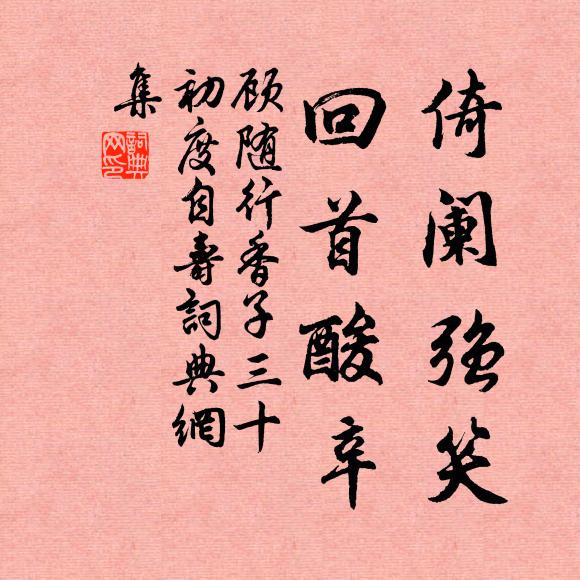 倚阑强笑
回首酸辛
顾随行香子三十
初度自壽詞典網
集
詞典網印